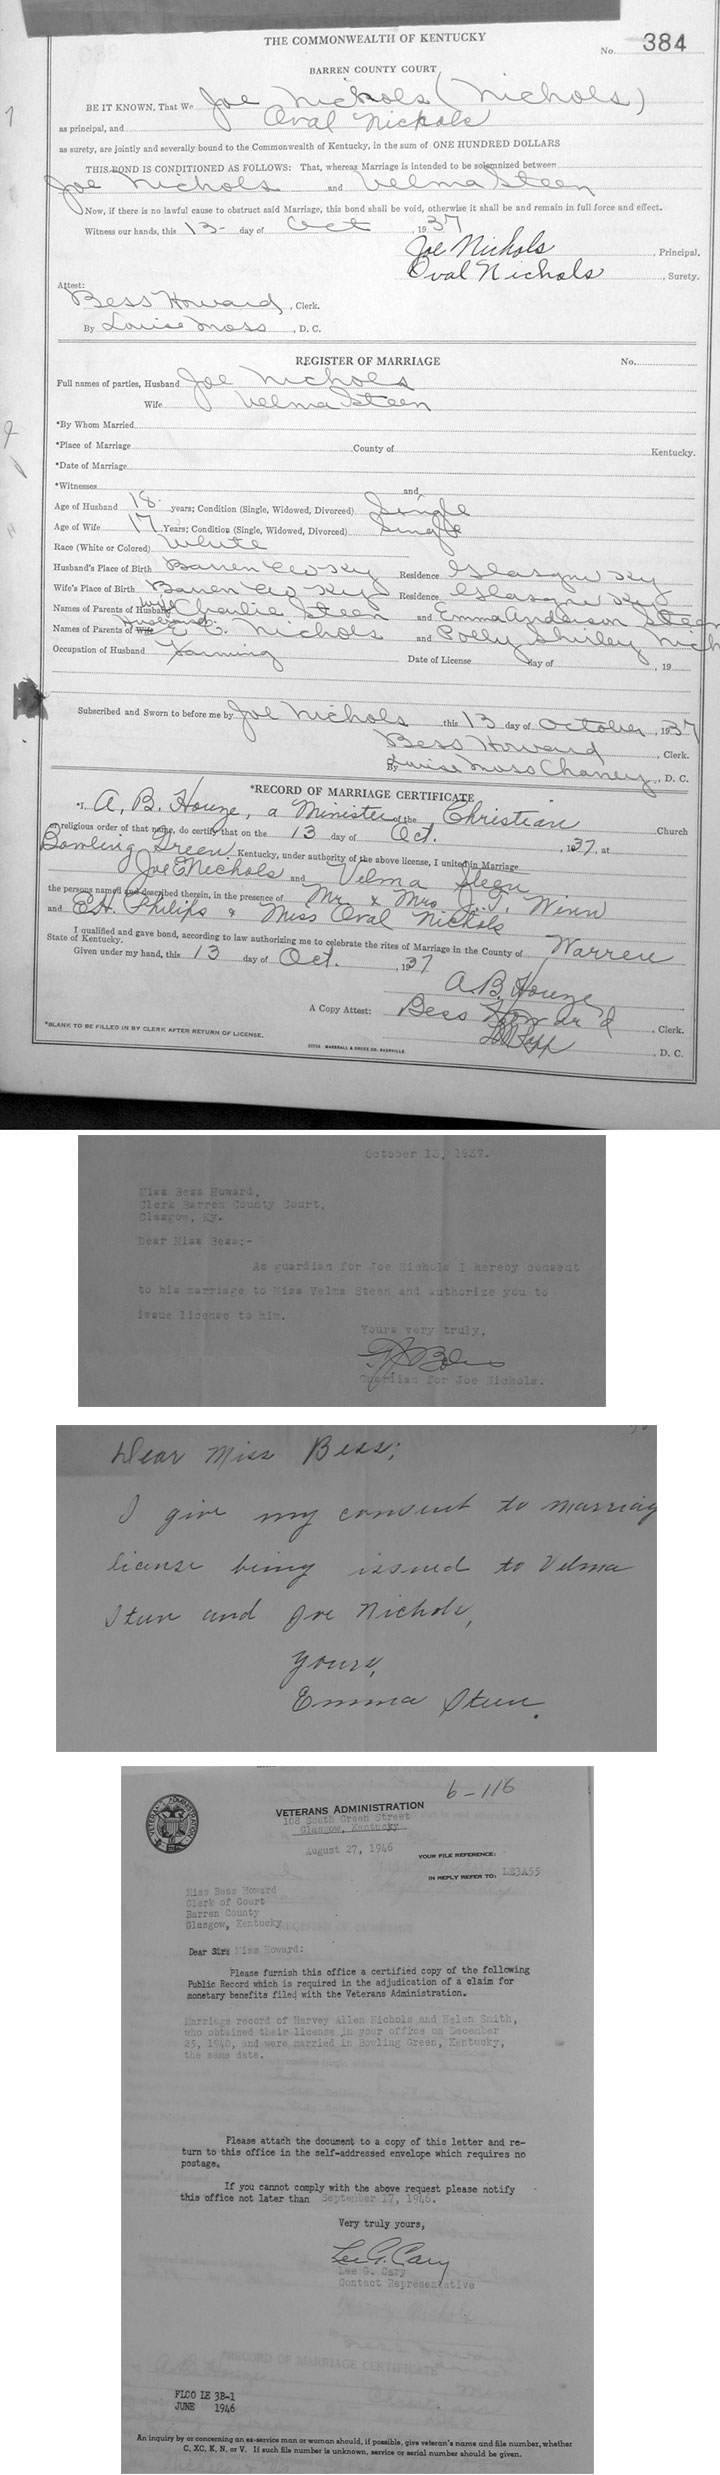 THE COMMONWEALTH OF KENTUCKY
No. 384
BARREN COUNTY COURT
BE IT KNOWN, That We Joe Nichols (Nichols)
as principal, and Oval Nichols
as surety, are jointly and severally bound to the Commonwealth of Kentucky, in the sum of ONE HUNDRED DOLLARS
THIS BOND IS CONDITIONED AS FOLLOWS: That, whereas Marriage is intended to be solemnized between
Joe Nichols and Velma Steen
Now, if there is no lawful cause to obstruct said Marriage, this bond shall be void, otherwise it shall be and remain in full force and effect.
Witness our hands, this 13 day of Oct, 1937
Joe Nichols, Principal.
Oval Nichols, Surety.
Attest:
Bess Howard, Clerk.
By Louise Moss, D. C.
REGISTER OF MARRIAGE No.
Full names of parties, Husband Joe Nichols
Wife Velma Steen
*By Whom Married
*Place of Marriage County of Kentucky.
*Date of Marriage
*Witnesses and
Age of Husband 18 years; Condition (Single, Widowed, Divorced) Single
Age of Wife 17 Years; Condition (Single, Widowed, Divorced) Single
Race (White or Colored) White
Husband's Place of Birth Barren Co Ky Residence Glasgow Ky
Wife's Place of Birth Barren Co Ky Residence Glasgow Ky
Names of Parents of Husband Wife Charlie Steen and Emma Anderson Steen
Names of Parents of Wife Husband E. C. Nichols and Polly Shirley Nich
Occupation of Husband Farming Date of License day of , 19
Subscribed and Sworn to before me by Joe Nichols this 13 day of October, 1937
Bess Howard, Clerk.
By Louise Moss Chaney, D. C.
*RECORD OF MARRIAGE CERTIFICATE
*I, A. B. Houze, a Minister of the Christian Church
or religious order of that name, do certify that on the 13 day of Oct. , 1937, at
Bowling Green Kentucky, under authority of the above license, I united in Marriage
Joe E Nichols and Velma Steen
the persons named and described therein, in the presence of Mr. & Mrs. J. T. Winn
and E. H. Philips & Miss Oval Nichols
I qualified and gave bond, according to law authorizing me to celebrate the rites of Marriage in the County of Warren
State of Kentucky.
Given under my hand, this 13 day of Oct. , 1937
A. B. Houze
A Copy Attest: Bess Howard, Clerk.
, D. C.
*BLANK TO BE FILLED IN BY CLERK AFTER RETURN OF LICENSE.
MARSHALL & BRUCE CO. NASHVILLE
October 13, 1937.
Miss Bess Howard,
Clerk Barren County Court,
Glasgow, Ky.
Dear Miss Bess:-
As guardian for Joe Nichols I hereby consent
to his marriage to Miss Velma Steen and authorize you to
issue license to him.
Yours very truly,
Guardian for Joe Nichols.
Dear Miss Bess;
I give my consent to marriag
license being issued to Velma
Steen and Joe Nichols,
Yours,
Emma Steen.
6-116
VETERANS ADMINISTRATION
108 South Green Street
Glasgow, Kentucky
August 27, 1946
YOUR FILE REFERENCE:
IN REPLY REFER TO: LE3A55
Miss Bess Howard
Clerk of Court
Barren County
Glasgow, Kentucky
Dear Sir: Miss Howard:
Please furnish this office a certified copy of the following
Public Record which is required in the adjudication of a claim for
monetary benefits filed with the Veterans Administration.
Marriage record of Harvey Allen Nichols and Helen Smith,
who obtained their license in your office on December
25, 1940, and were married in Bowling Green, Kentucky,
the same date.
Please attach the document to a copy of this letter and re-
turn to this office in the self-addressed envelope which requires no
postage.
If you cannot comply with the above request please notify
this office not later than September 17, 1946.
Very truly yours,
Lee G. Cary
Lee G. Cary
Contact Representative
FLCO LE 3B-1
JUNE 1946
An inquiry by or concerning an ex-service man or woman should, if possible, give veteran's name and file number, whether
C, XC, K, N, or V. If such file number is unknown, service or serial number should be given.